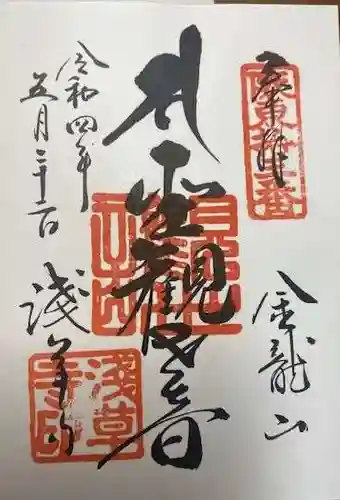 奉拝
坂東十三番
金龍山
聖観世音
令和四年
五月二十二日
浅草寺
浅草寺印